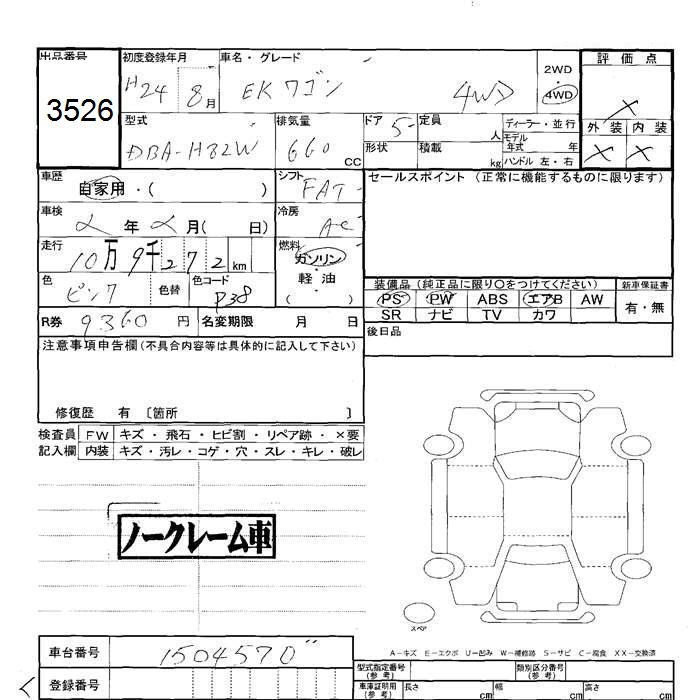 出品番号 初度登録年月 車名・グレード 2WD 評価点
3526 H24 8月 EKワゴン 4WD 4WD ×
型式 排気量 ドア 5 定員 人 ディーラー・並行 外装 内装
DBA-H82W 660 CC 形状 積載 kg モデル年式 年 × ×
ハンドル 左・右
車歴 自家用・( ) シフト FAT セールスポイント (正常に機能するものに限ります)
車検 年 月( 日) 冷房 AC
走行 10万9千272km 燃料 ガソリン
軽・油
( )
色 ピンク 色替 色コード P38 装備品 (純正品に限り○をつけてください) 新車保証書
PS PW ABS エアB AW 有・無
SR ナビ TV カワ
R券 9360円 名変期限 月 日 後日品
注意事項申告欄(不具合内容等は具体的に記入して下さい)
修復歴 有 〔箇所 〕
検査員 FW キズ・飛石・ヒビ割・リペア跡・×要
記入欄 内装 キズ・汚レ・コゲ・穴・スレ・キレ・破レ
ノークレーム車
スペア
A-キズ E-エクボ U-凹み W-補修跡 S-サビ C-腐食 XX-交換済
車台番号 1504570 型式指定番号(参考) 類別区分番号(参考)
登録番号 車庫証明用(参考) 長さ cm 幅 cm 高さ cm